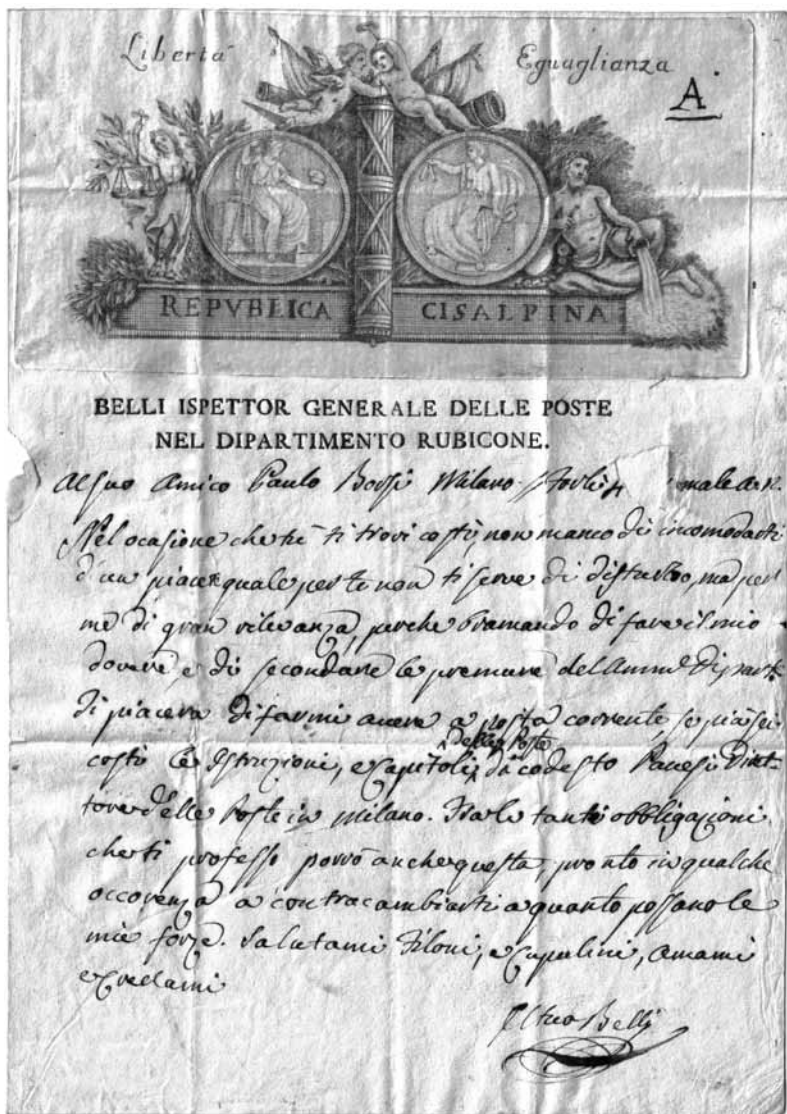 Libertà Eguaglianza
A
REPVBLICA CISALPINA
BELLI ISPETTOR GENERALE DELLE POSTE
NEL DIPARTIMENTO RUBICONE.
Al suo Amico Paulo Borsi Milano Forlì 4
Nel ocasione che ti trovi costì, non manco di incomodarti
d'un piacer quale per te non ti serve di disturbo, ma per
me di gran rilevanza, perche bramando di fare il mio
dovere, e di secondare le premure del
di piacera di farmi avere a posta corrente, se più sei
costì le Istruzioni, e Capitoli delle Poste di codesto Pavesi Diret-
tore delle Poste in Milano. Fra le tante obbligazioni
che ti professo porrò anche questa, pronto in qualche
occorenza a contracambiarti a quanto possano le
mie forze. Salutami Filoni, e Capulini, amami
e credami
Il tuo Belli